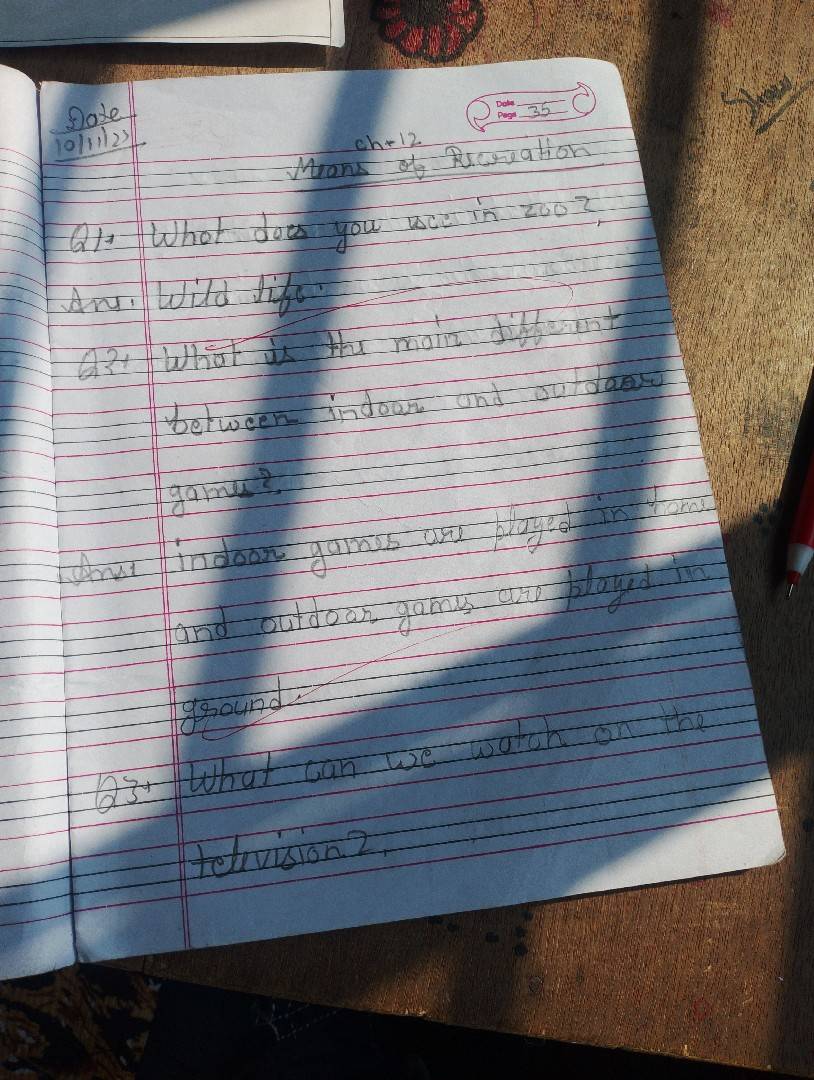 Date
10/11/23
Date
Page 35
ch-12
Means of Recreation
Q1+ What does you see in zoo?
Ans. Wild life.
Q2+ What is the main different
between indoor and outdoor
games?
Ans+ indoor games are played in home
and outdoor games are played in
ground.
Q3+ What can we watch on the
television?
Show